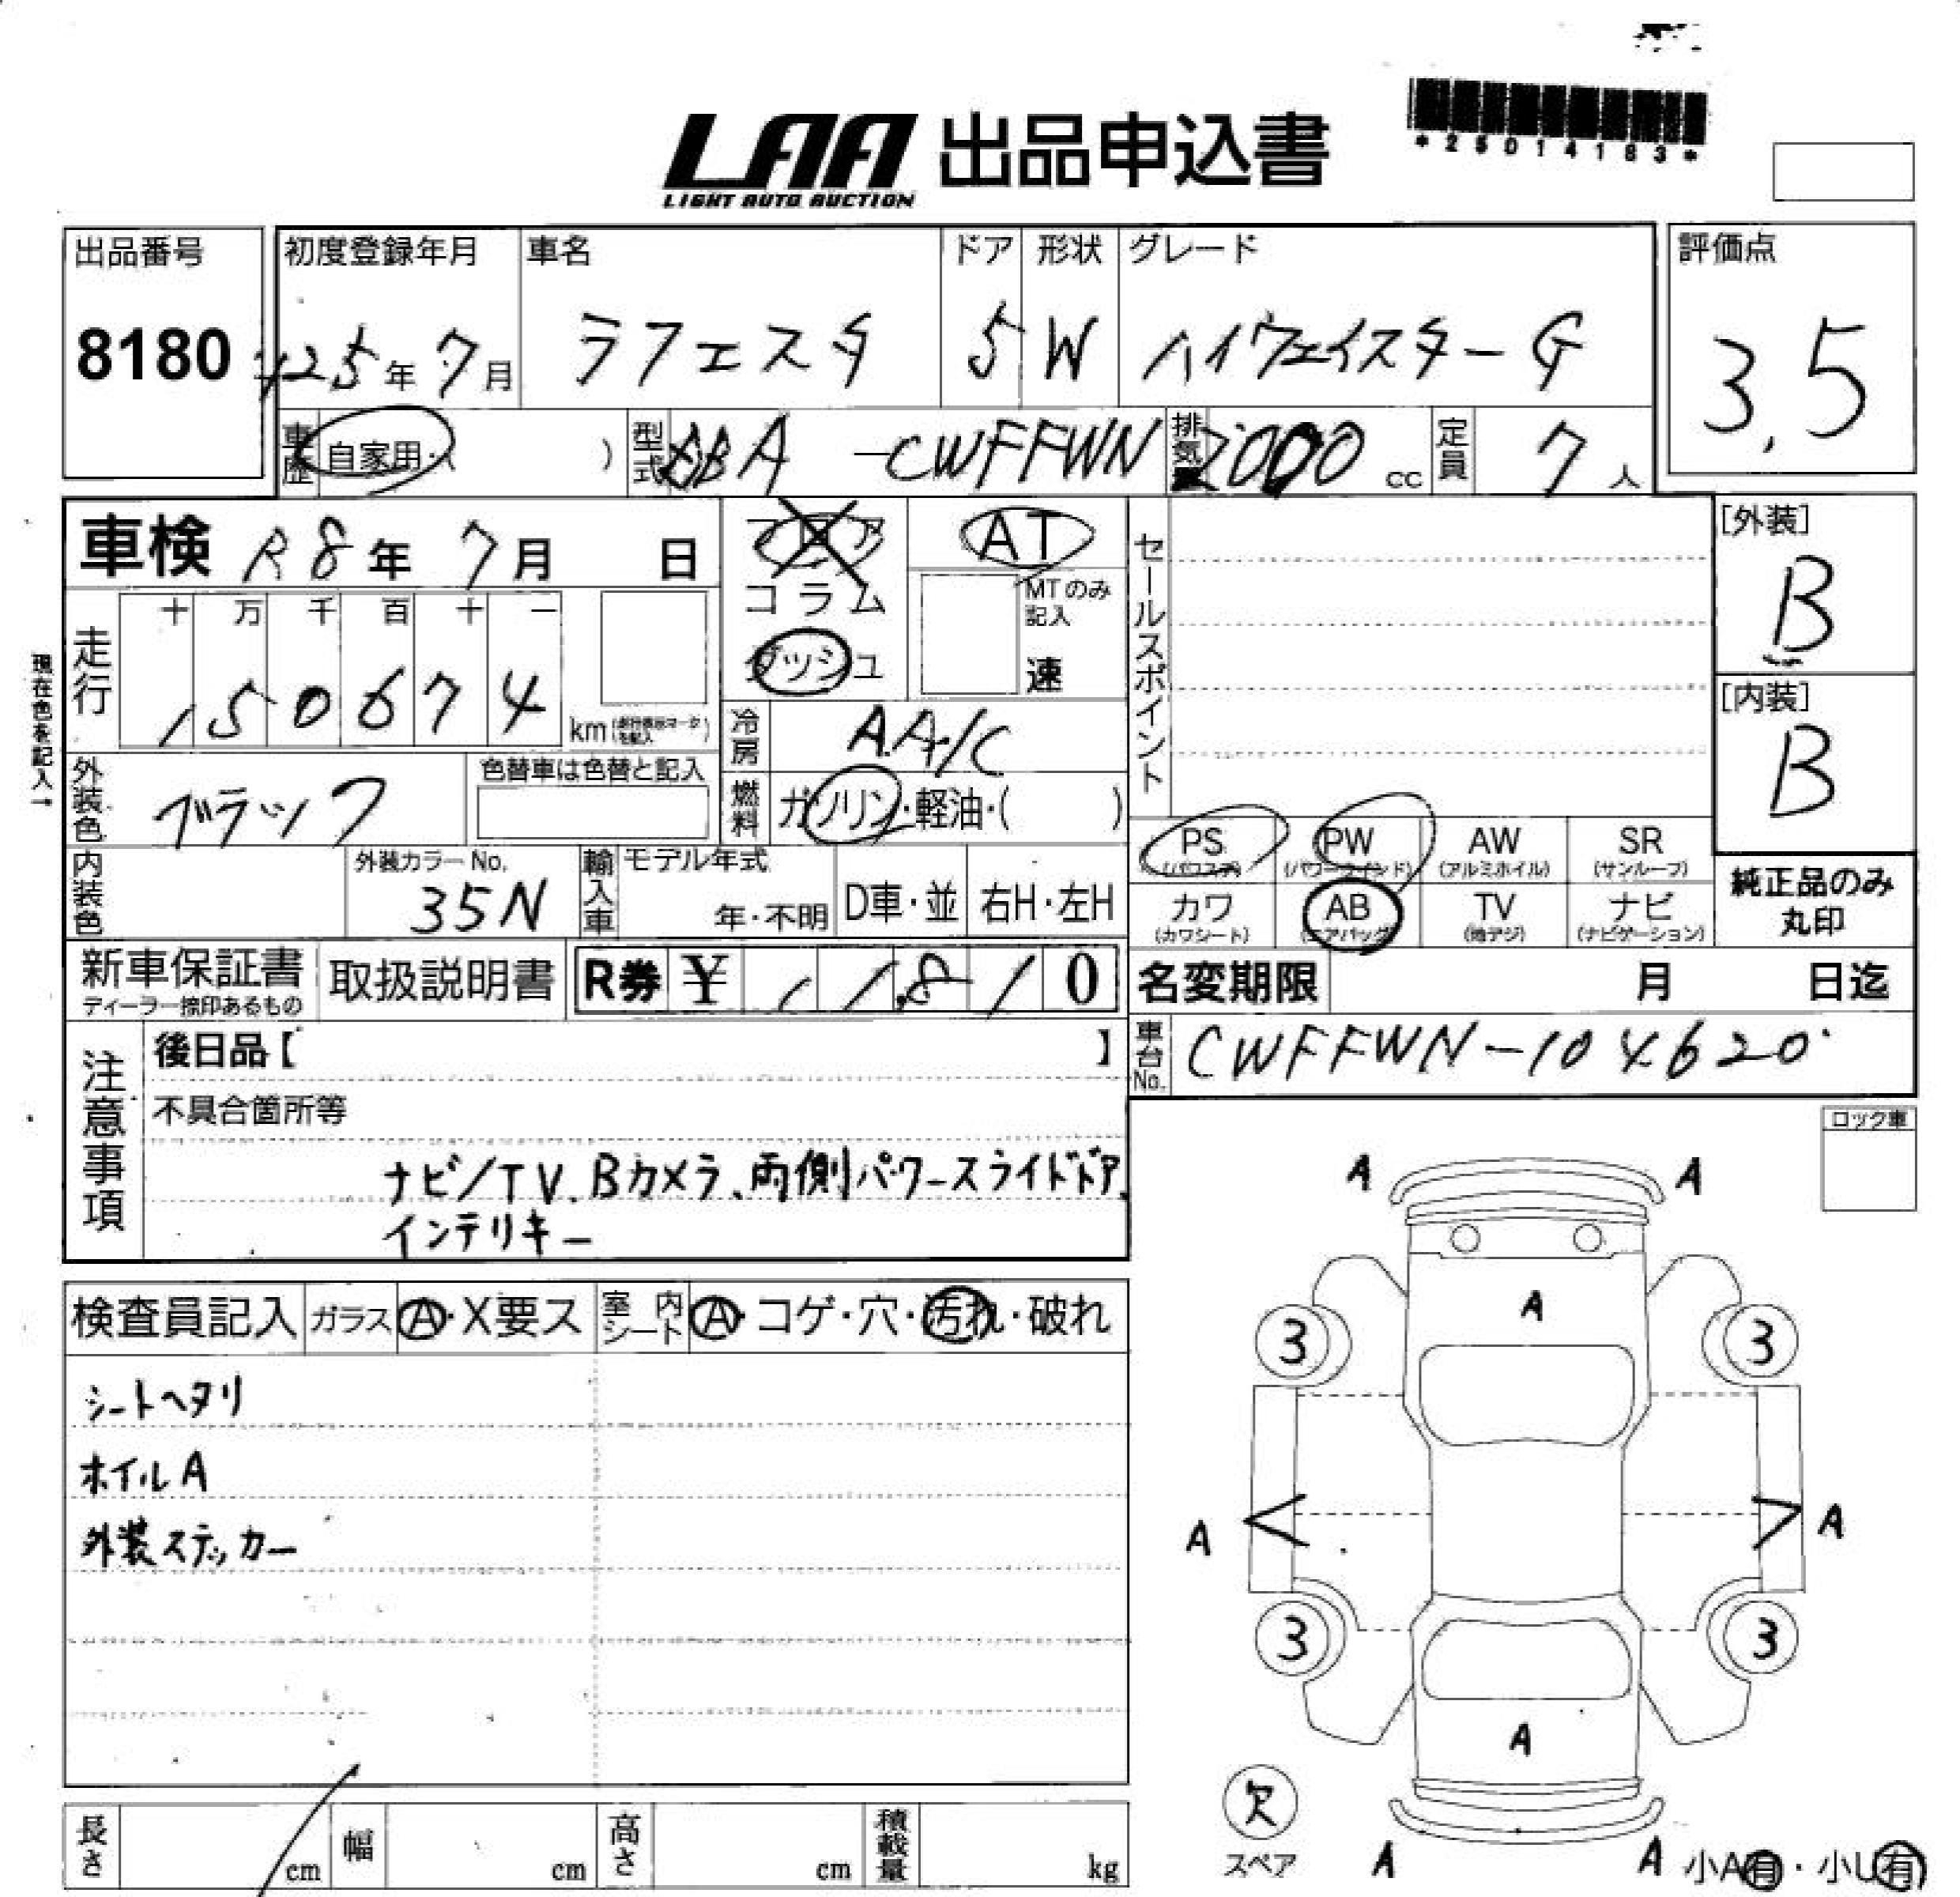 *25014183*
LAA 出品申込書
LIGHT AUTO AUCTION
出品番号 初度登録年月 車名 ドア 形状 グレード 評価点
8180 H25年 7月 ラフェスタ 5 W ハイウェイスターG 3.5
車歴 自家用・( ) 型式 DBA-CWFFWN 排気量 2000 cc 定員 7人
車検 R8年 7月 日 フロア AT セールスポイント [外装]
コラム MTのみ記入 B
十 万 千 百 十 一
走行 150674 km ダッシュ 速 [内装]
現在色を記入→
冷房 A.A/C B
外装色 ブラック 色替車は色替と記入 燃料 ガソリン・軽油・( )
PS PW AW SR
(パワステ) (パワーウインド) (アルミホイル) (サンルーフ)
内装色 外装カラーNo. 35N 輸入車 モデル年式 年・不明 D車・並 右H・左H
カワ AB TV ナビ 純正品のみ
(カワシート) (エアバッグ) (地デジ) (ナビゲーション) 丸印
新車保証書 取扱説明書 R券 ¥ 1 1,8 1 0 名変期限 月 日迄
ディーラー捺印あるもの
車台No. CWFFWN-104620
注意事項 後日品【 】
不具合箇所等
ロック車
ナビ/TV、Bカメラ、両側パワースライドドア、
インテリキー
A A
検査員記入 ガラス A・X要ス 室内シート A・コゲ・穴・汚れ・破れ
A
3 3
シートヘタリ
ホイルA
外装ステッカー
A A
3 3
A
欠
スペア
A A 小A有・小U有
長さ cm 幅 cm 高さ cm 積載量 kg